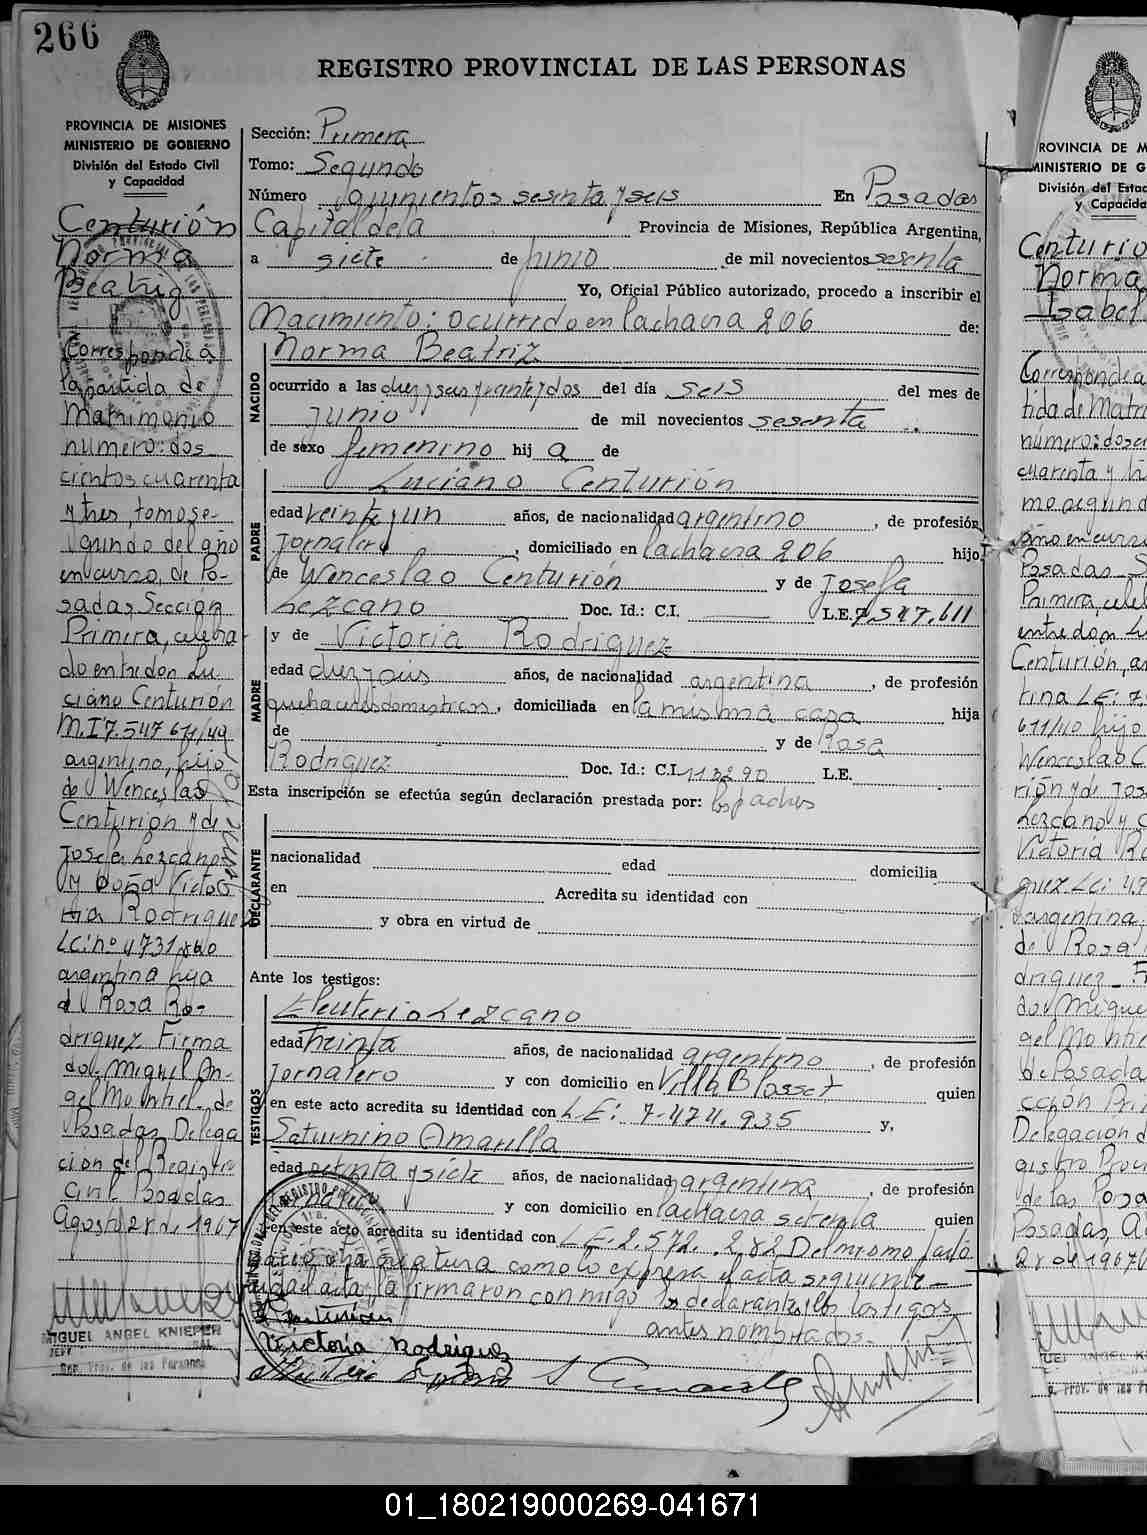 266
REGISTRO PROVINCIAL DE LAS PERSONAS
PROVINCIA DE MISIONES
MINISTERIO DE GOBIERNO
División del Estado Civil
y Capacidad
Centurión
Norma
Beatriz
Corresponde a
la partida de
Matrimonio
numero: dos
cientos cuarenta
y tres, tomo se-
gundo del año
en curso, de Po-
sadas, Sección
Primera, celebra
do entre don Lu-
ciano Centurión
M.I 7.547 611/49
argentino, hijo
de Wenceslao
Centurion y de
Josefa Lezcano
y doña Victo
ria Rodriguez
LC: nº 4731.840
argentina hija
de Rosa Ro-
driguez Firma
do: Miguel An-
gel Montiel de
Posadas Delega
cion del Registro
Civil Posadas
Agosto 28 de 1967
MIGUEL ANGEL KNIEPER
JEFE
Reg. Prov. de las Personas
Sección: Primera
Tomo: Segundo
Número quinientos sesenta y seis En Posadas
Capital de la Provincia de Misiones, República Argentina,
a siete de junio de mil novecientos sesenta
Yo, Oficial Público autorizado, procedo a inscribir el
Nacimiento: ocurrido en la chacra 206 de:
NACIDO
Norma Beatriz
ocurrido a las del día seis del mes de
junio de mil novecientos sesenta
de sexo femenino hij a de
Luciano Centurión
PADRE
edad veinte y un años, de nacionalidad argentino, de profesión
jornalero, domiciliado en la chacra 206 hijo
de Wenceslao Centurión y de Josefa
Lezcano Doc. Id.: C.I. L.E. 7.547.611
y de Victoria Rodriguez
MADRE
edad años, de nacionalidad argentina, de profesión
quehaceres domesticos, domiciliada en la misma casa hija
de y de Rosa
Rodriguez Doc. Id.: C.I. 113290 L.E.
Esta inscripción se efectúa según declaración prestada por: los padres
DECLARANTE
nacionalidad edad domicilia
en Acredita su identidad con
y obra en virtud de
Ante los testigos:
TESTIGOS
Eleuterio Lezcano
edad treinta años, de nacionalidad argentino, de profesión
jornalero y con domicilio en Villa Blosset quien
en este acto acredita su identidad con L.E: 7.474.935 y,
Saturnino Amarilla
edad y siete años, de nacionalidad argentina, de profesión
y con domicilio en la chacra setenta quien
en este acto acredita su identidad con L.E. 2.572.282 Del mismo
como lo expresa el acta siguiente
la firmaron conmigo los declarantes y los testigos
antes nombrados.
Centurion
Victoria Rodriguez
ROVINCIA DE M
MINISTERIO DE G
División del Estad
y Capacida
Centurio
Norma
Isabel
Corresponde a
tida de Matri
numero: dosc
cuarenta y tr
mo segund
año en curso
Posadas S
Primera, cele
entre don Lu
Centurión, ar
tina LE: 7.5
611/40 hijo
Wenceslao C
rión y de Jos
Lezcano y d
Victoria Ro
guez LC: 47
argentina,
de Rosa
driguez_ Fi
do: Migue
gel Montie
de Posada
cción Pri
Delegacion d
gistro Prov
de las Perso
Posadas, A
28 de 1967
01_180219000269-041671